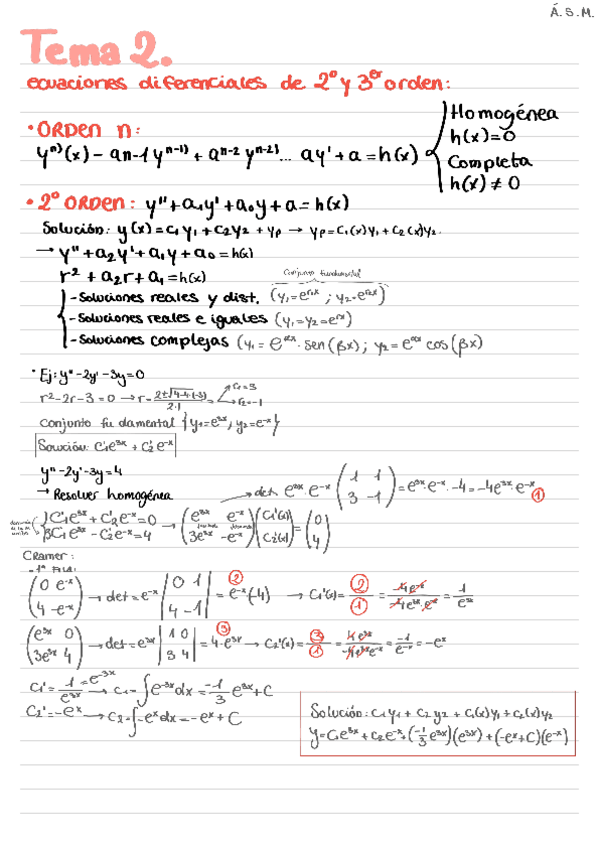 Á.S.M.
Tema 2.
ecuaciones diferenciales de 2º y 3er orden:
• ORDEN n:
yⁿ⁾(x) - an-1 yⁿ⁻¹⁾ + an-2 yⁿ⁻²⁾... ay' + a = h(x)
Homogénea
h(x)=0
Completa
h(x) ≠ 0
• 2º ORDEN: y'' + a₁y' + a₀y + a = h(x)
Solución: y(x) = c₁y₁ + c₂y₂ + yp → yp = c₁(x)y₁ + c₂(x)y₂.
→ y'' + a₂y' + a₁y + a₀ = h(x)
r² + a₂r + a₁ = h(x)
Conjunto fundamental
- Soluciones reales y dist. (y₁=e^r₁x ; y₂=e^r₂x)
- Soluciones reales e iguales (y₁=y₂=e^rx)
- Soluciones complejas (y₁ = e^αx · sen(βx) ; y₂ = e^αx cos(βx)
• Ej: y'' - 2y' - 3y = 0
r² - 2r - 3 = 0 → r = 2±√4-4·(-3) / 2·1
r₁=3
r₂=-1
Conjunto fu damental {y₁=e^3x ; y₂=e^-x}
Solución: C₁e^3x + C₂e^-x
y'' - 2y' - 3y = 4
→ Resolver homogénea
→ det e^3x · e^-x (1 1 / 3 -1) = e^3x · e^-x · -4 = -4e^3x · e^-x ①
{C₁'e^3x + C₂'e^-x = 0
3C₁'e^3x - C₂'e^-x = 4
→ (e^3x e^-x / 3e^3x -e^-x)(C₁'(x) / C₂'(x)) = (0 / 4)
Cramer:
(0 e^-x / 4 -e^-x) → det = e^-x |0 1 / 4 -1| = e^-x(-4) ② → C₁'(x) = ②/① = -4e^-x / -4e^3x · e^-x = 1/e^3x
(e^3x 0 / 3e^3x 4) → det = e^3x |1 0 / 3 4| = 4·e^3x ③ → C₂'(x) = ③/① = 4e^3x / -4e^3x e^-x = -1/e^-x = -e^x
C₁' = 1/e^3x = e^-3x → C₁ = ∫e^-3x dx = -1/3 e^3x + C
C₂' = -e^x → C₂ = ∫-e^x dx = -e^x + C
Solución: C₁y₁ + C₂y₂ + C₁(x)y₁ + C₂(x)y₂
y = C₁e^3x + C₂e^-x + (-1/3 e^3x)(e^3x) + (-e^x + C)(e^-x)